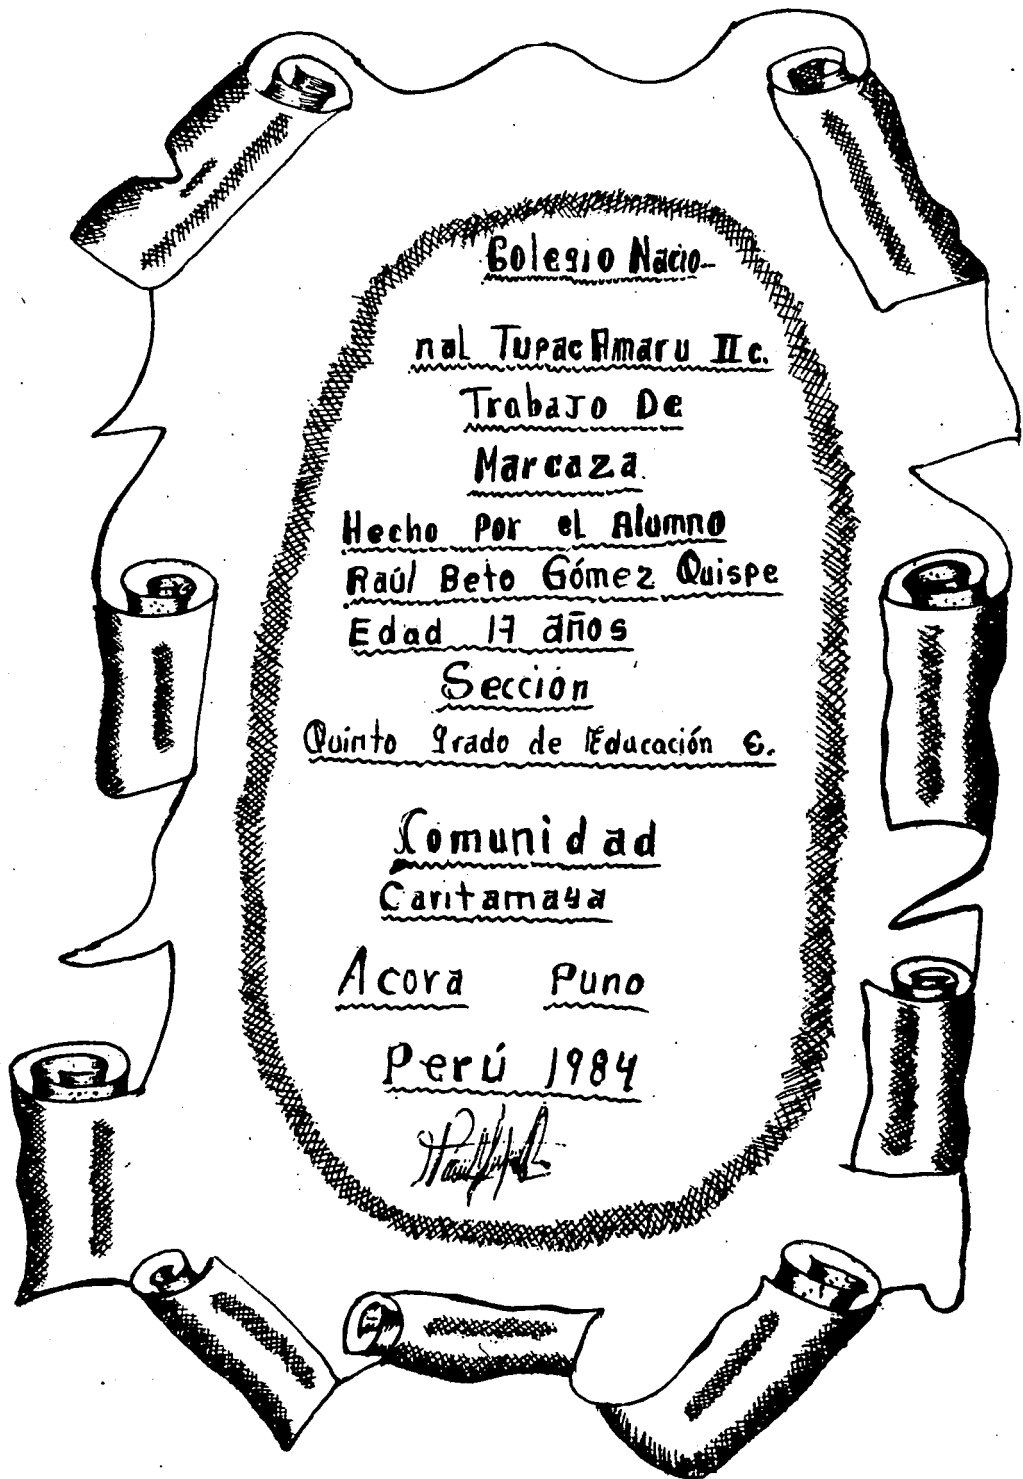 Colegio Nacio-
nal Tupac Amaru II c.
Trabajo De
Marcaza.
Hecho Por el Alumno
Raúl Beto Gómez Quispe
Edad 17 años
Sección
Quinto grado de Educación S.
Comunidad
Caritamaya
Acora Puno
Perú 1984